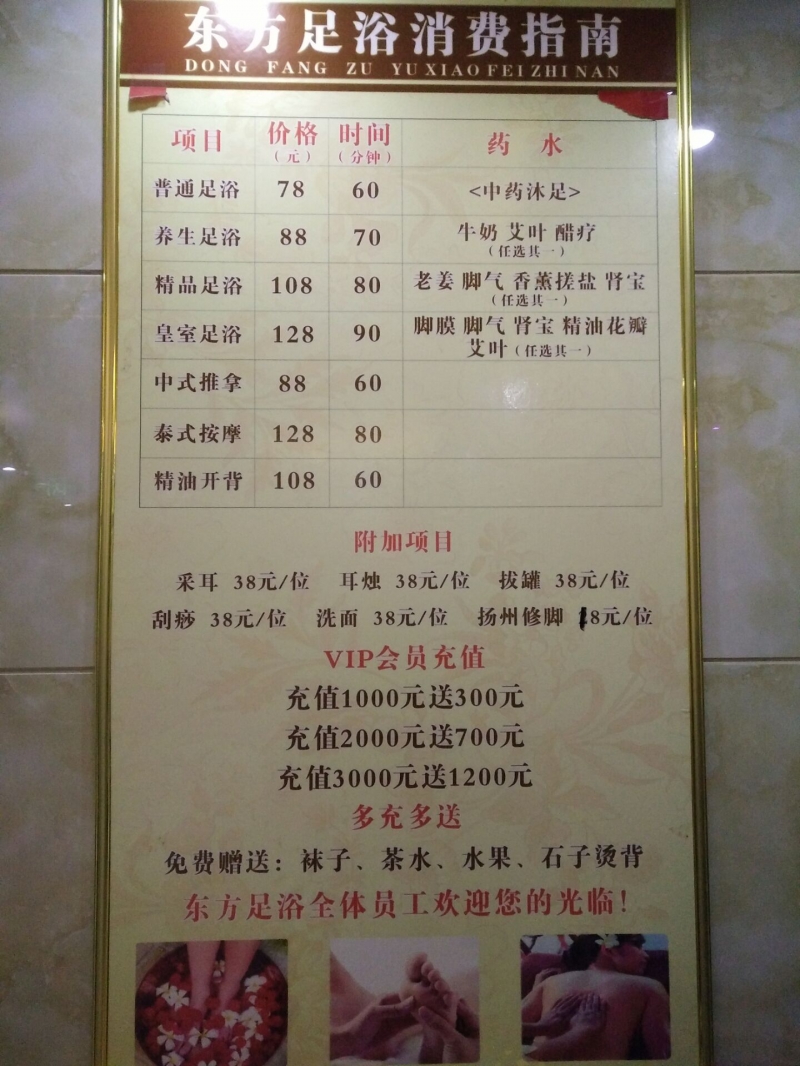 东方足浴消费指南
DONG FANG ZU YU XIAO FEI ZHI NAN
项目 价格 时间 药 水
（元） （分钟）
普通足浴 78 60 <中药沐足>
养生足浴 88 70 牛奶 艾叶 醋疗
（任选其一）
精品足浴 108 80 老姜 脚气 香薰搓盐 肾宝
（任选其一）
皇室足浴 128 90 脚膜 脚气 肾宝 精油花瓣
艾叶（任选其一）
中式推拿 88 60
泰式按摩 128 80
精油开背 108 60
附加项目
采耳 38元/位 耳烛 38元/位 拔罐 38元/位
刮痧 38元/位 洗面 38元/位 扬州修脚 8元/位
VIP会员充值
充值1000元送300元
充值2000元送700元
充值3000元送1200元
多充多送
免费赠送：袜子、茶水、水果、石子烫背
东方足浴全体员工欢迎您的光临！